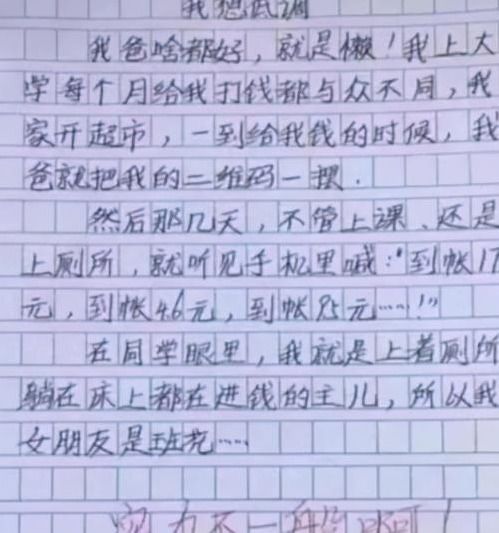 我想低调
我爸啥都好，就是懒！我上大
学每个月给我打钱都与众不同，我
家开超市，一到给我钱的时候，我
爸就把我的二维码一摆.
然后那几天，不管上课、还是
上厕所，就听见手机里喊：“到帐17
元，到帐4.6元，到帐85元……！”
在同学眼里，我就是上着厕所
躺在床上都在进钱的主儿，所以我
女朋友是班花……
实力不一般的啊！